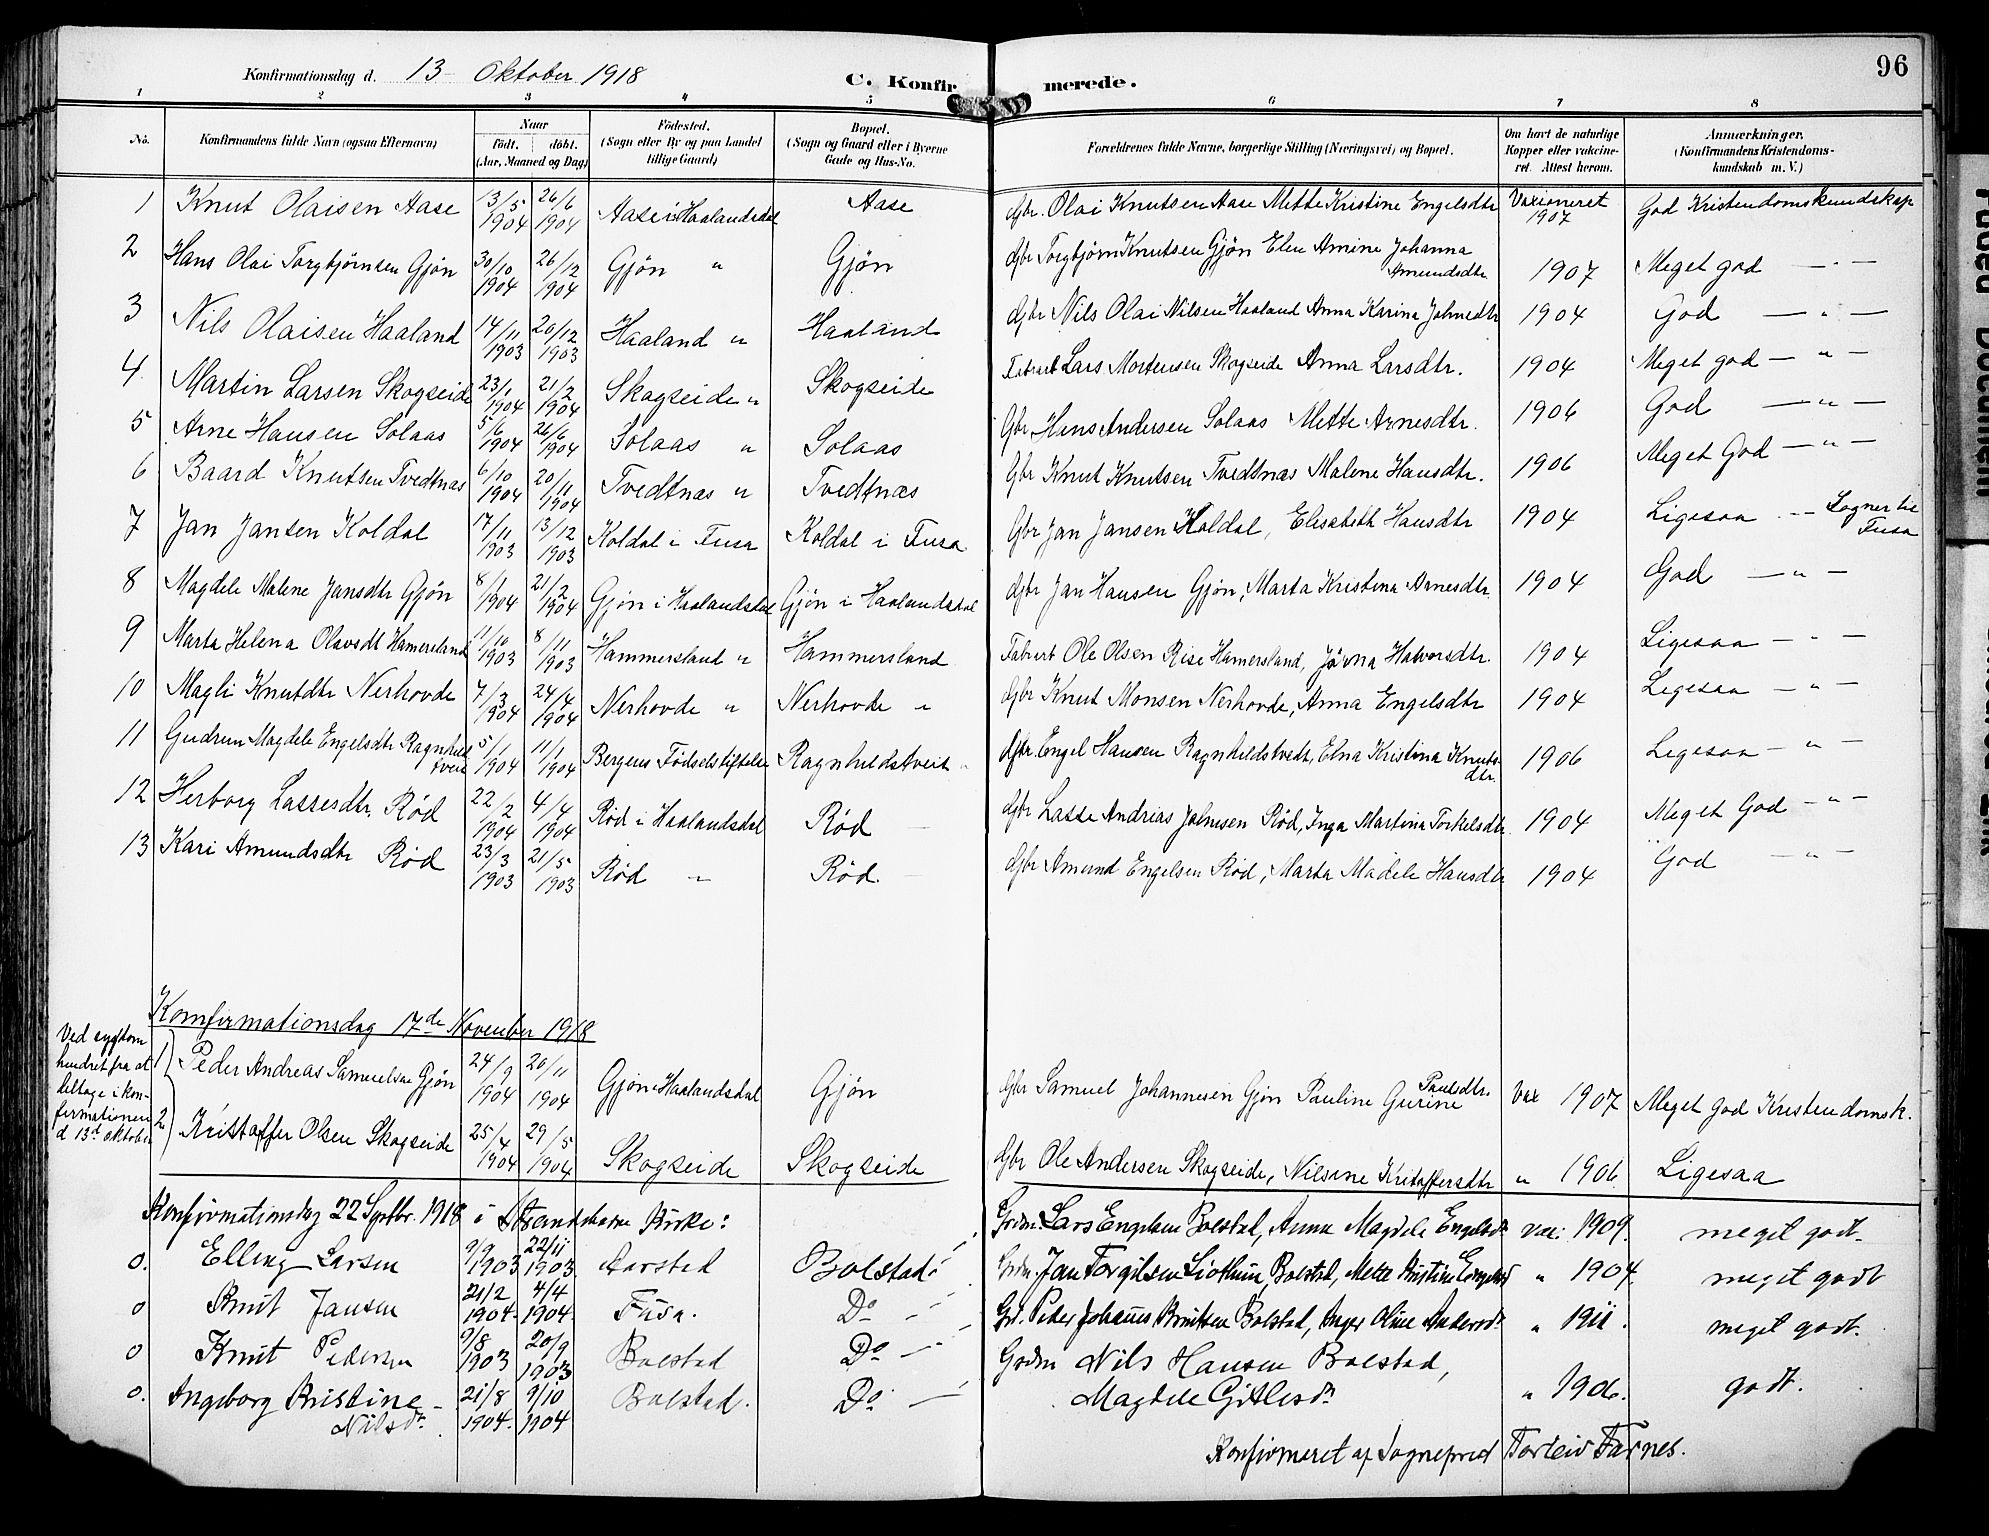 96
Konfirmationsdag d. 13 Oktober 1918 C. Konfirmerede.
1 2 3 4 5 6 7 8
No. Konfirmandens fulde Navn (ogsaa Efternavn) Naar født. døbt. (Aar, Maaned og Dag) Fødested. (Sogn eller By og paa Landet tillige Gaard) Bopæl. (Sogn og Gaard eller i Byerne Gade og Hus-No. Forældrenes fulde Navne, borgerlige Stilling (Næringsvei) og Bopæl. Om havt de naturlige Kopper eller vaccineret. Attest herom. Anmærkninger. (Konfirmandens Kristendomskundskab m. V.)
1 Knut Olaisen Aase 13/5 1904 26/6 1904 Aase i Haalandsdal Aase Gbr. Olai Knutsen Aase Mette Kristine Engelsdtr Vaxioneret 1907 God Kristendomskundskap
2 Hans Olai Torgbjørnsen Gjøn 30/10 1904 26/12 1904 Gjøn " Gjøn Gbr Torgbjørn Knutsen Gjøn Elen Amine Johanna Amundsdtr 1907 Meget god — " —
3 Nils Olaisen Haaland 14/11 1903 20/12 1903 Haaland " Haaland Gbr Nils Olai Nilsen Haaland Anna Karina Johnsdtr 1904 God — " —
4 Martin Larsen Skogseide 23/1 1904 21/2 1904 Skogseide " Skogseide Fabrart Lars Mortensen Skogseide Anna Larsdtr. 1904 Meget god — " —
5 Arne Hansen Solaas 5/6 1904 26/6 1904 Solaas " Solaas Gbr Hans Andersen Solaas Mette Arnesdtr. 1906 God — " —
6 Baard Knutsen Tvedtnæs 6/10 1904 20/11 1904 Tvedtnæs " Tvedtnæs Gbr Knut Knutsen Tvedtnæs Malene Hansdtr. 1906 Meget God — " —
7 Jan Jansen Koldal 17/11 1903 13/12 1903 Koldal i Fusa Koldal i Fusa Gbr Jan Jansen Koldal, Elisabeth Hansdtr 1904 Ligesaa — Sogner til Fusa
8 Magdele Malene Jansdtr Gjøn 8/1 1904 21/2 1904 Gjøn i Haalandsdal Gjøn i Haalandsdal Gbr Jan Hansen Gjøn, Marta Kristina Arnesdtr. 1904 God — " —
9 Marta Helena Olavsdt Hamersland 11/10 1903 8/11 1903 Hammersland " Hammersland Fabrart Ole Olsen Rise Hamersland, Jørna Halvorsdtr. 1904 Ligesaa — " —
10 Magli Knutdtr Nerhovde 7/3 1904 24/4 1904 Nerhovde " Nerhovde " Gbr Knut Monsen Nerhovde, Anna Engelsdtr 1904 Ligesaa — " —
11 Gudrun Magdele Engelsdtr Ragnhildstveit 5/1 1904 11/1 1904 Bergens Fødselstiftelse Ragnhildstveit Gbr. Engel Hansen Ragnhildstvedt, Elna Kristina Knutsdtr. 1906 Ligesaa — " —
12 Herborg Lassesdtr. Rød 22/2 1904 4/4 1904 Rød i Haalandsdal Rød Gbr Lasse Andrias Johnsen Rød, Inga Martina Torkelsdtr. 1904 Meget God — " —
13 Kari Amundsdtr Rød 23/3 1903 21/5 1903 Rød " Rød. Gbr Amund Engelsen Rød, Marta Madele Hansdtr 1904 God — " —
Konfirmationsdag 17de November 1918
Ved sygdom
hindret fra at
deltage i kon-
firmationen
d 13de oktober
1 Peder Andreas Samuelsen Gjøn 24/9 1904 20/11 1904 Gjøn i Haalandsdal Gjøn Gbr Samuel Johannesen Gjøn Pauline Gurine Paulsdtr. Vax 1907 Meget god Kristendomsk.
2 Kristoffer Olsen Skogseide 25/4 1904 29/5 1904 Skogseide Skogseide Gbr Ole Andersen Skogseide, Nilsine Kritoffersdtr " 1906 Ligesaa
Konfirmationsdag 22 Septbr. 1918 i Strandebarm Kirke:
0. Elling Larsen 9/9 1903 22/11 1903 Aarstad Bolstad Grdm. Lars Engelsen Bolstad, Anna Magdele Engelsdr vac: 1909. meget godt.
0 Knut Jansen 21/2 1904. 4/4 1904. Fusa. Do Grdm Jan Torgilsen Liothun, Bolstad, Mette Kristine Engelsd " 1904. meget godt
0 Knut Pedersen 9/8 1903 20/9 1903 Bolstad Do Gr. Peder Johannes Knutsen Bolstad, Inger Oline Andersdr " 1911. meget godt.
0. Ingeborg Kristine Nilsdr. 21/8 1904. 9/10 1904 Bolstad. Do Grdm Nils Hansen Bolstad, Magdele Gitlesdr " 1906. godt.
Konfirmeret af Sogneprest Torleiv Farnes.